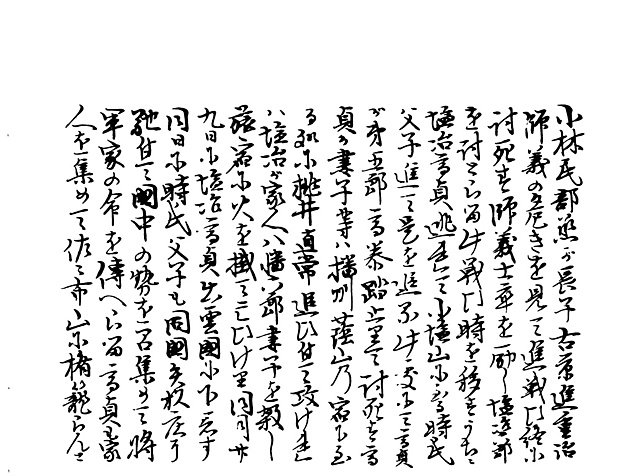 小林民部丞が長子右京進重治
師義の危きを見て進戦ひ終に
討死す師義士卒を励し塩冶部
を討とらる此戦ひ時を移すうちに
塩冶高貞逃延て小塩山に至る時氏
父子進て是を追ふ此交にて高貞
が弟五郎高泰踏止りて討死す高
貞の妻子等は播州蔭山の宿に至
る処に桃井直常追ひ付て攻けれ
は塩冶が家人八幡六郎妻子を殺し
旅宿に火を掛て亡ひけり同月廿
九日に塩冶高貞出雲国に下着す
同日に時氏父子も同国矢杉庄り
馳付て国中の勢を召集めて将
軍家の命を傳へらる高貞も家
人を集めて佐々布山に楯籠らんと